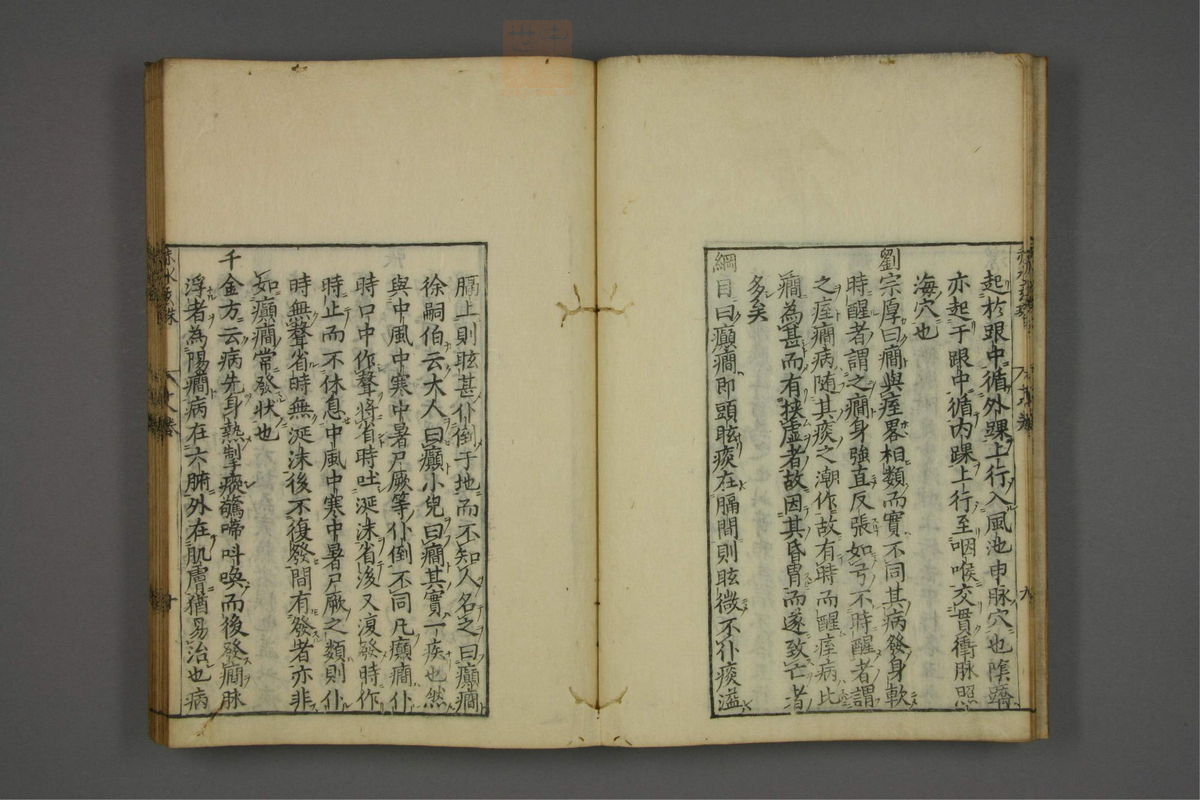 起於跟中循外踝上行入風池也申脉穴也陰蹻
亦起于跟中循内踝上行至咽喉交貫衝脉照
海穴也
劉宗厚曰癇與痓畧相類而實不同其病發身軟
時醒者謂之癇身強直反張如弓不時醒者謂
之痓癇病随其痰之潮作故有時而醒痓病比
癇為甚而有挟虚者故因其昏冒而遂致亡者
多矣
綱目曰癲癇即頭眩痰在膈間則眩微不仆痰溢
膈上則眩甚仆倒于地而不知人名之曰癲癇
徐嗣伯云大人曰癲小兒曰癇其實一疾也然
與中風中寒中暑尸厥等仆倒不同凡癲癇仆
時口中作聲將省時吐涎沫省後又復發時作
時止而不休息中風中寒中暑尸厥之類則仆
時無聲省時無涎沫後不復發間有發者亦非
如癲癇常發状也
千金方云病先身熱掣瘲驚啼呌喚而後發癇脉
浮者為陽癇病在六腑外在肌膚猶易治也病